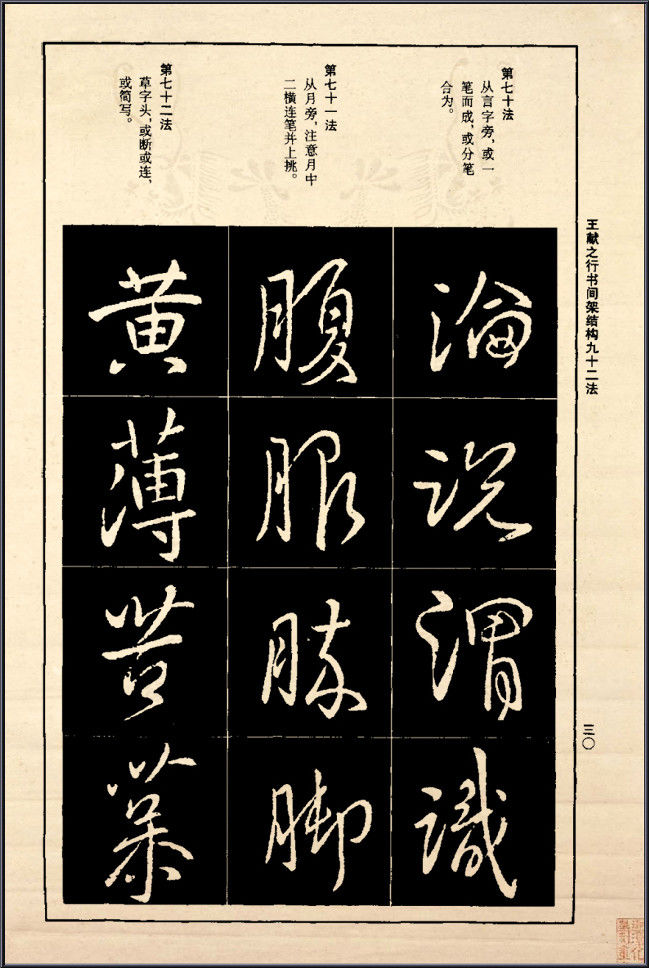 王献之行书间架结构九十二法
三〇
第七十法
从言字旁,或一
笔而成,或分笔
合为。
論
説
謂
識
第七十一法
从月旁,注意月中
二横连笔并上挑。
腹
服
脚
第七十二法
草字头,或断或连,
或简写。
黄
薄
苦